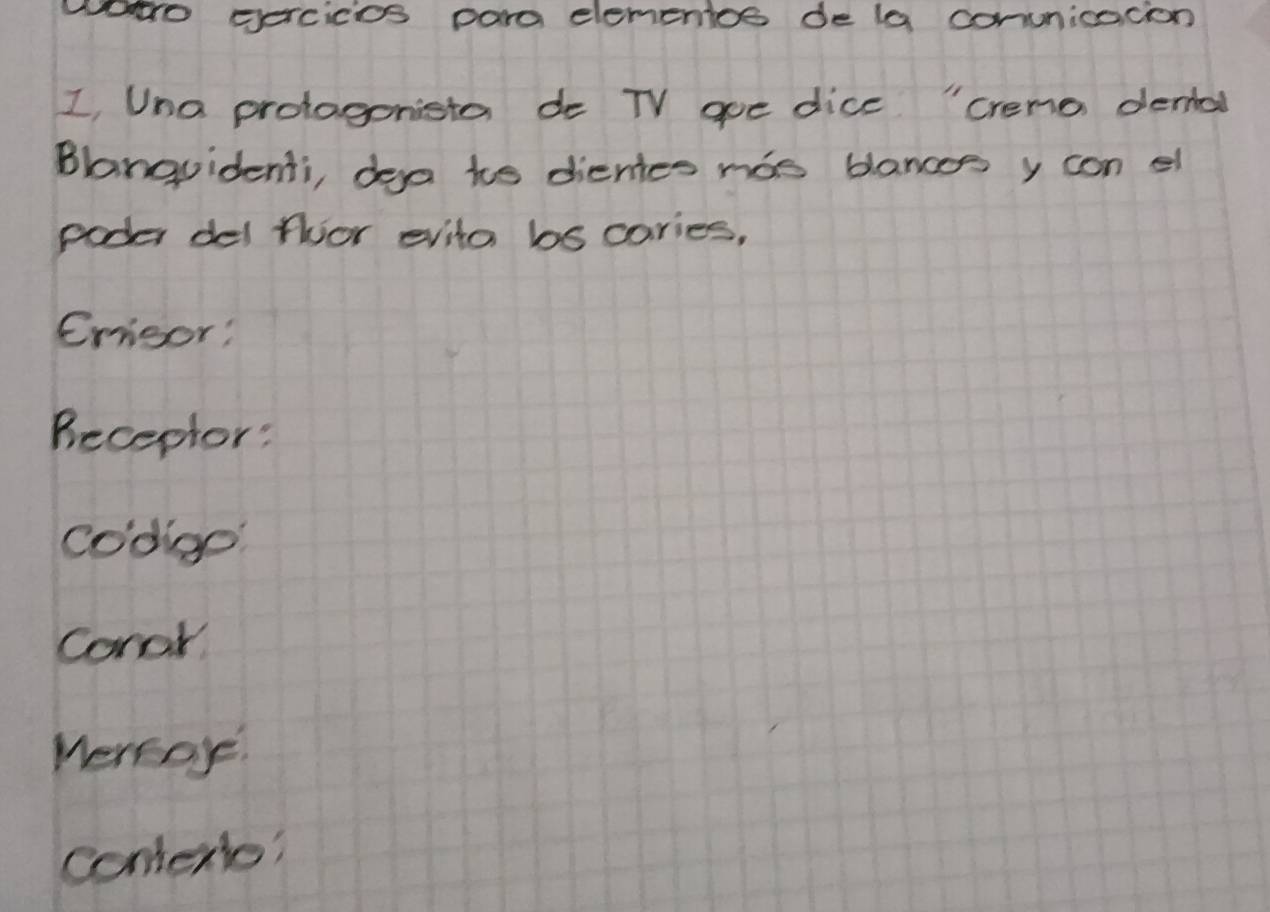 ejercicios para elementos de la comunicacion
1, Una protagonista de TV que dice "crema dental
Blanquidenti, deja tus dientes más blancos y con el
poder del flúor evita las caries.
Emisor:
Receptor:
código:
Canal:
Mensaje:
contexto: